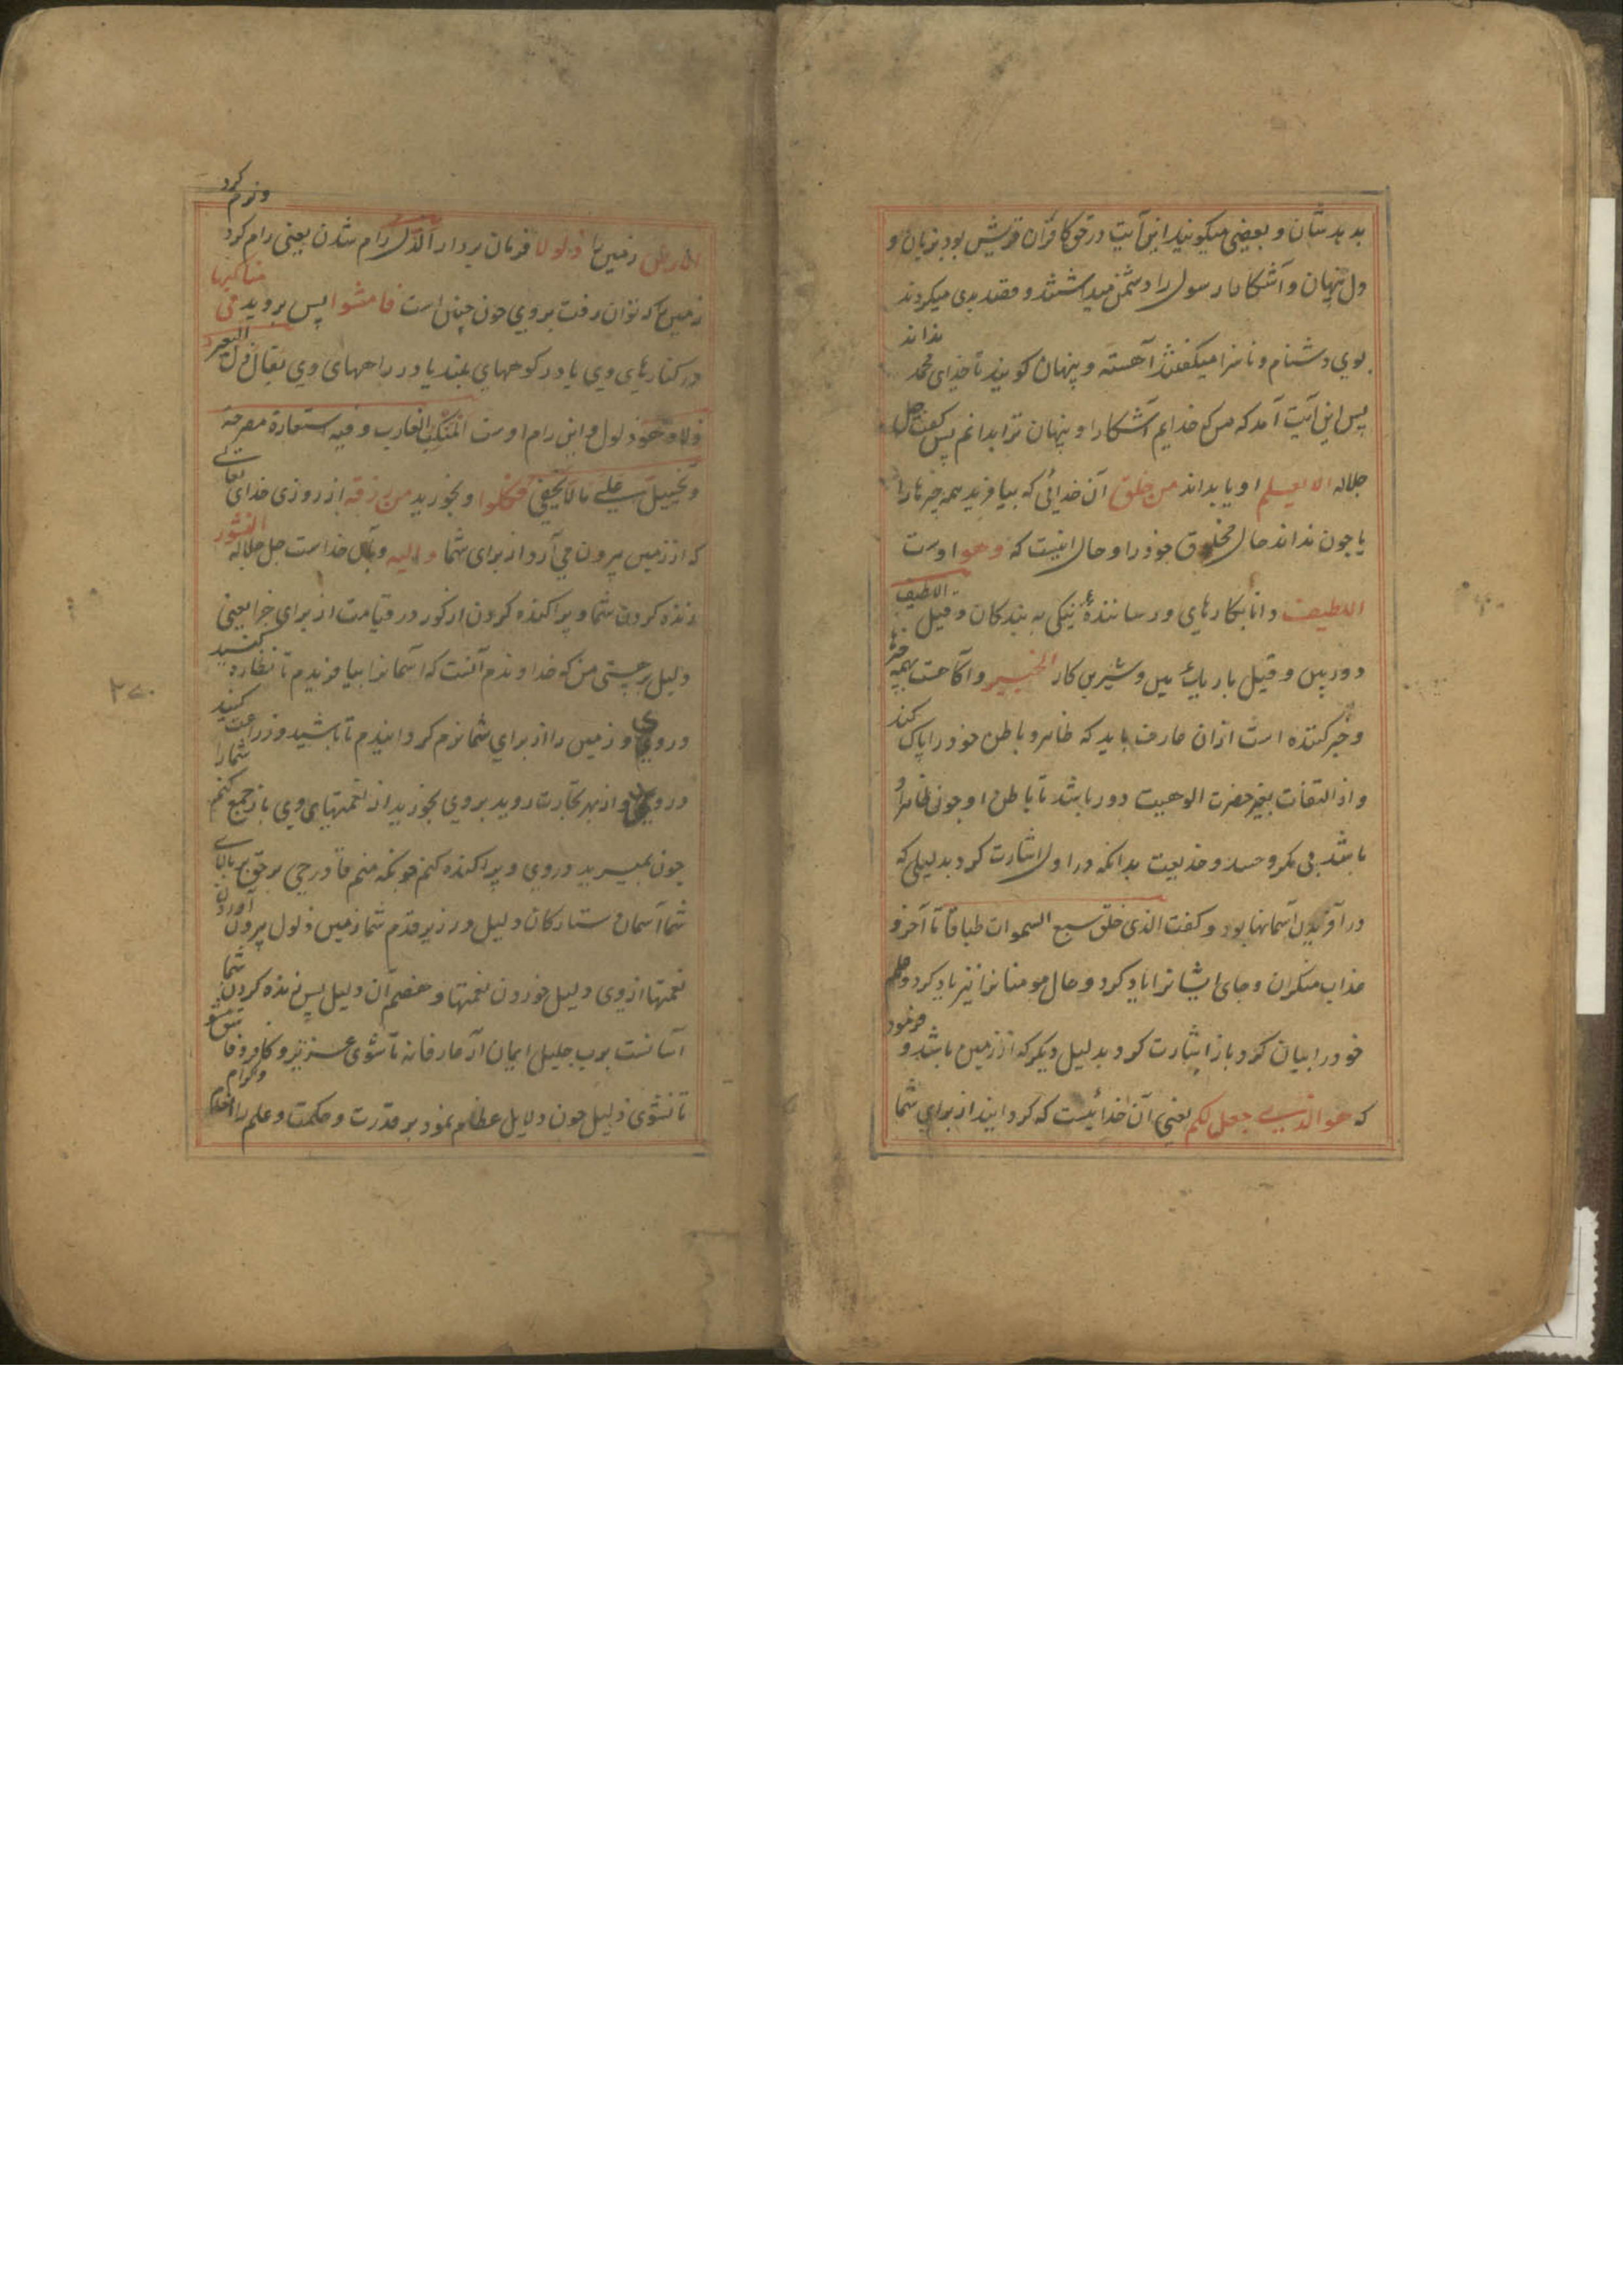 بد بدیشان و بعضی میکویند این آیت در حق کافران قریش بود بزبان و
دل پنهان و آشکارا رسول را دشمن میداشتند و قصد بدی میکردند
بوی دشنام و ناسزا میکفتند آهسته و پنهان کویند تا خدای محمد نداند
پس این آیت آمد که من که خدایم آشکارا و پنهان ترا بدانم پس کفت جل
جلاله الا یعلم او یا بداند من خلق آن خدائی که بیافرید همه چیزها را
یا چون نداند حال مخلوق خود را و حال اینست که وهو اوست
اللطیف دانا بکارهای و رساننده نیکی به بندکان و قیل اللطیف
دوربین و قیل باریک بین و شیرین کار الخبیر و آکاهست بهمه چیز
و خبر کننده است ازان عارف باید که ظاهر و باطن خود را پاک کند
و از التفات بغیر حضرت الوهیت دور باشد تا باطن او چون ظاهر او
باشد بی مکر و حسد و خدیعت بدانکه در اول اشارت کرد بدلیلی که
در آفریدن آسمانها بود و کفت الذی خلق سبع السموات طباقا تا آخر و
عذاب منکران و جای ایشانرا یاد کرد و حال مومنانرا نیز یاد کرد و علم
خود را بیان کرد باز اشارت کرد بدلیل دیکر که از زمین باشد و فرمود
که هو الذی جعل لکم یعنی آن خدائیست که کردانید از برای شما
الارض زمین را ذلولا فرمان بردار الذل رام شدن یعنی رام کرد و نرم کرد
زمین را که توان رفت بروی چون چنین است فامشوا پس بروید فی مناکبها
در کنارهای وی یا در کوههای بلند یا در راههای وی یقال ذل البعیر
ذلا وهو ذلول و این رام اوست المنکب الغارب و فیه استعارة مصرحة
و تخییل علی ما لا یخفی وکلوا و بخورید من رزقه از روزی خدای تعالی
که از زمین بیرون می آرد از برای شما و الیه و بآن خداست جل جلاله النشور
زنده کردن شما و پراکنده کردن از کور در قیامت از برای جزا یعنی
دلیل بر هستی من که خداوندم آنست که آسمانرا بیافریدم تا نظاره کنید
در وی و زمین را از برای شما نرم کردانیدم تا باشید و زراعت کنید
در وی و از بهر تجارت روید بر وی بخورید از نعمتهای وی باز جمع کنم شما را
چون بمیرید در وی و پراکنده کنم چونکه منم قادر حی بر حق بر بالای
شما آسمان و ستارکان دلیل و در زیر قدم شما زمین ذلول بیرون آوردن
نعمتها از وی دلیل خوردن نعمتها و هضم آن دلیل پس زنده کردن شما
آسانست بر رب جلیل ایمان آر عارفانه تا شوی عزیز و کافر و فاسق مشو
تا نشوی ذلیل چون دلایل عظام نمود بر قدرت و حکمت و علم را